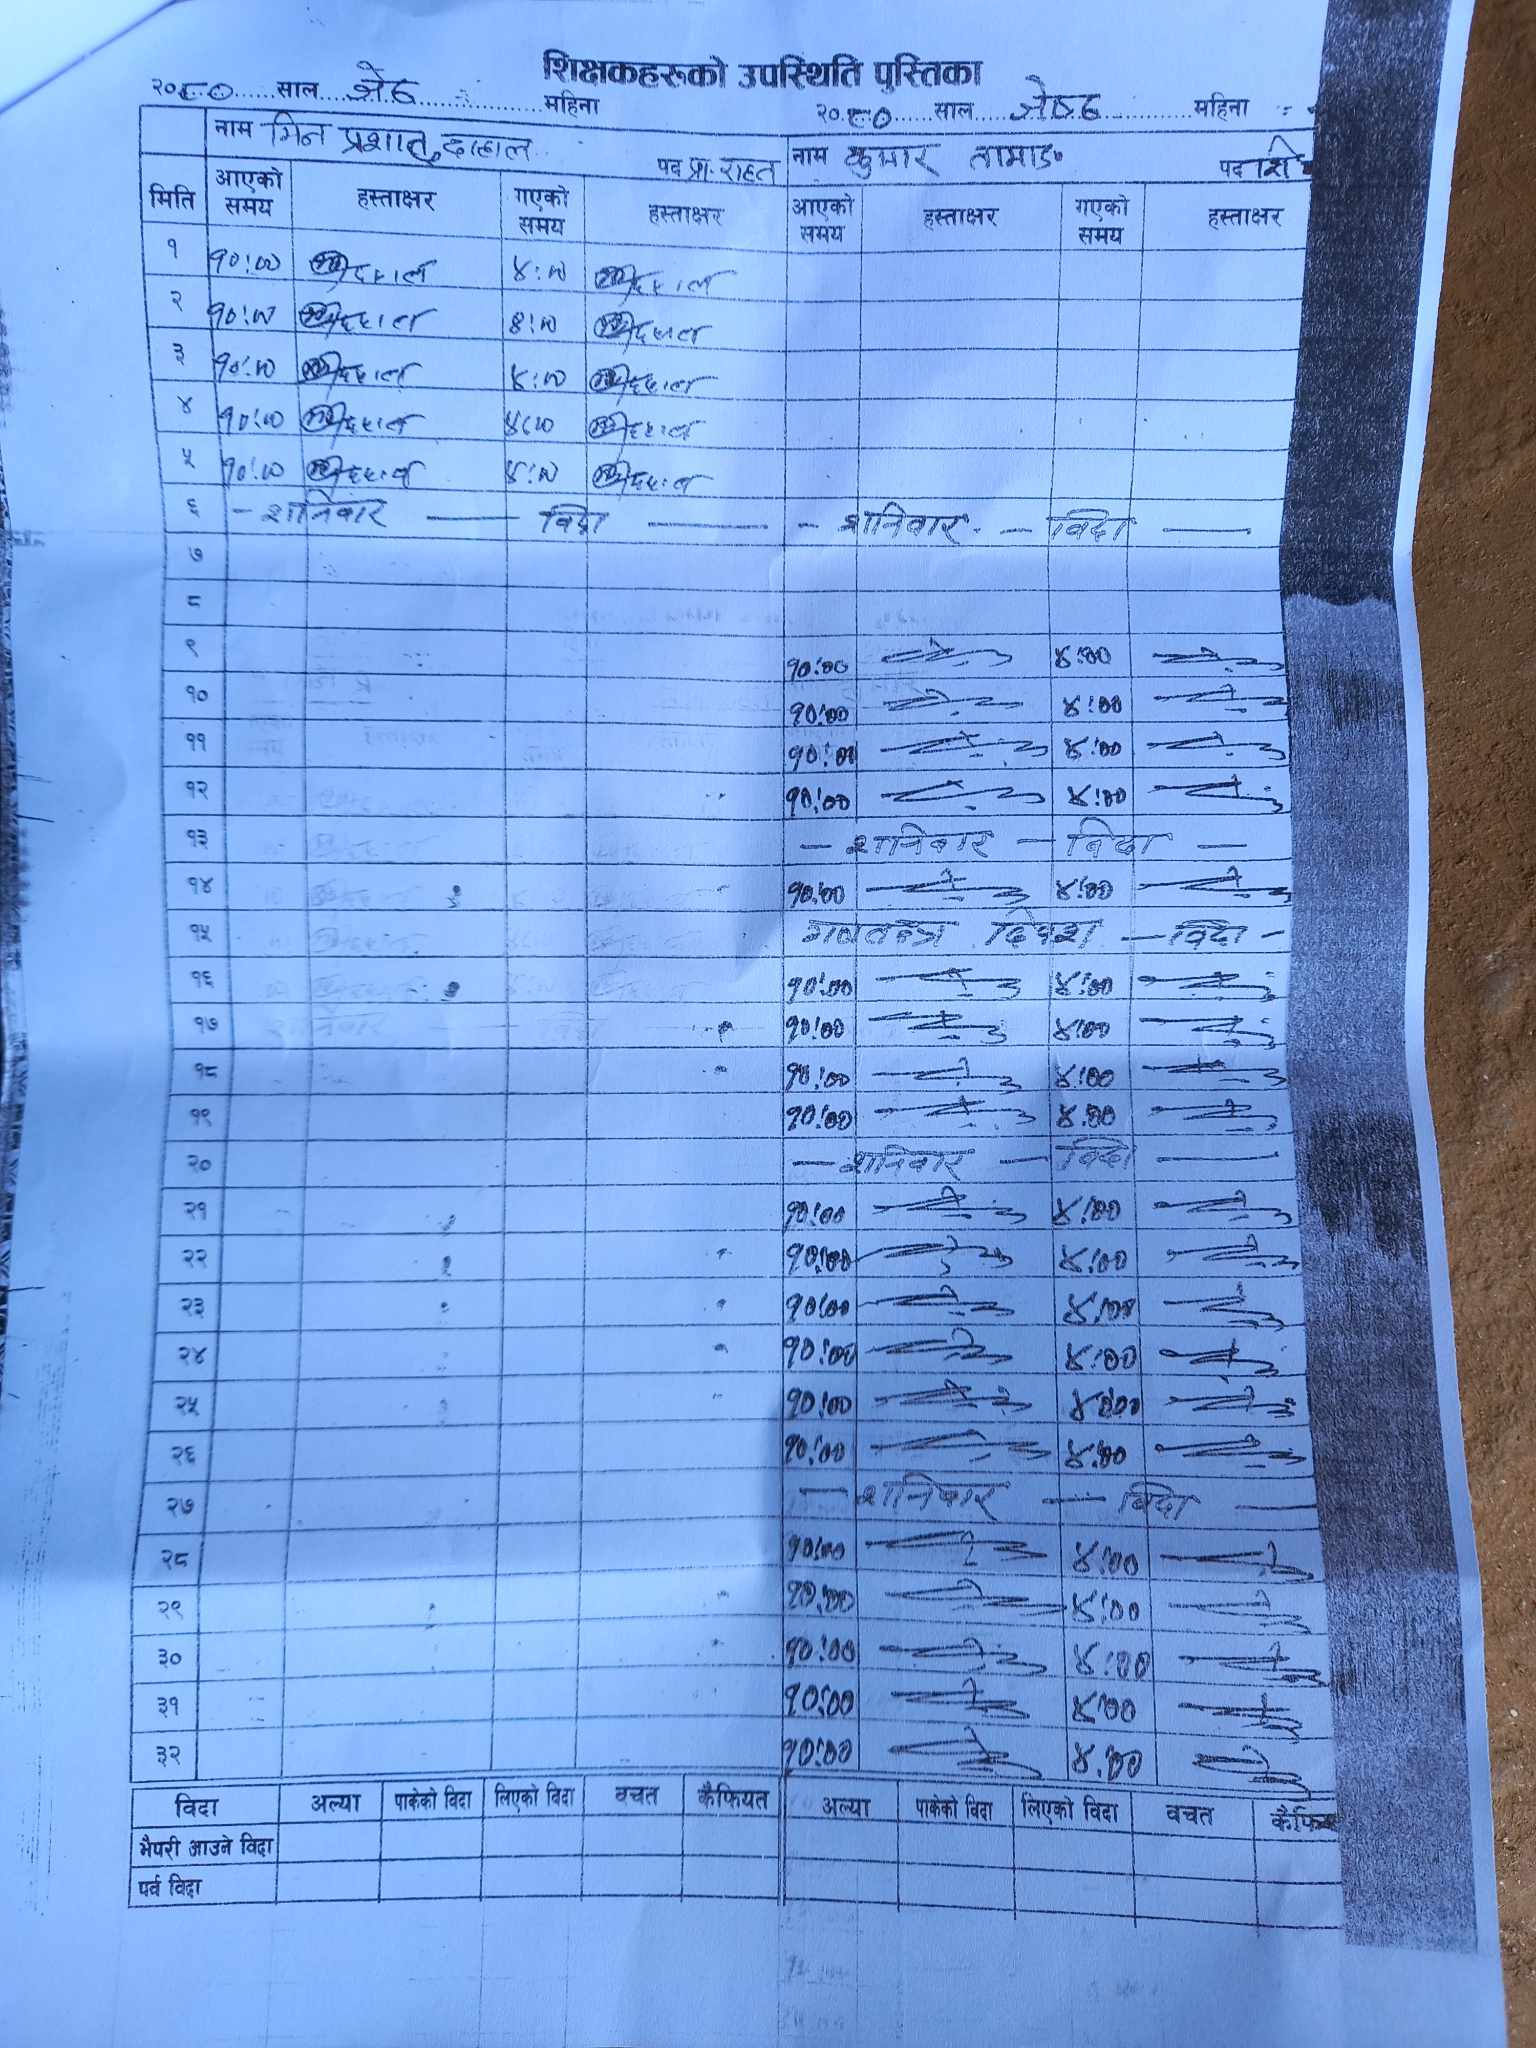 शिक्षकहरुको उपस्थिति पुस्तिका
२०८०......साल...जेठ...महिना २०८०......साल...जेष्ठ...महिना
नाम मिन प्रशाद दाहाल पद प्रा. राहत नाम कुमार तामाङ पद शि
मिति आएको समय हस्ताक्षर गएको समय हस्ताक्षर आएको समय हस्ताक्षर गएको समय हस्ताक्षर
१ १०:०० दाहाल ४:०० दाहाल
२ १०:०० दाहाल ४:०० दाहाल
३ १०:०० दाहाल ४:०० दाहाल
४ १०:०० दाहाल ४:०० दाहाल
५ १०:०० दाहाल ४:०० दाहाल
६ - शनिवार — विदा — - शनिवार - — विदा —
७
८
९ १०:०० ४:००
१० १०:०० ४:००
११ १०:०० ४:००
१२ १०:०० ४:००
१३ — शनिवार — विदा —
१४ १०:०० ४:००
१५ गणतन्त्र दिवश — विदा -
१६ १०:०० ४:००
१७ १०:०० ४:००
१८ १०:०० ४:००
१९ १०:०० ४:००
२० — शनिवार — विदा —
२१ १०:०० ४:००
२२ १०:०० ४:००
२३ १०:०० ४:००
२४ १०:०० ४:००
२५ १०:०० ४:००
२६ १०:०० ४:००
२७ — शनिवार — विदा —
२८ १०:०० ४:००
२९ १०:०० ४:००
३० १०:०० ४:००
३१ १०:०० ४:००
३२ १०:०० ४:००
विदा अल्या पाकेको विदा लिएको विदा वचत कैफियत अल्या पाकेको विदा लिएको विदा वचत कैफि
भैपरी आउने विदा
पर्व विदा